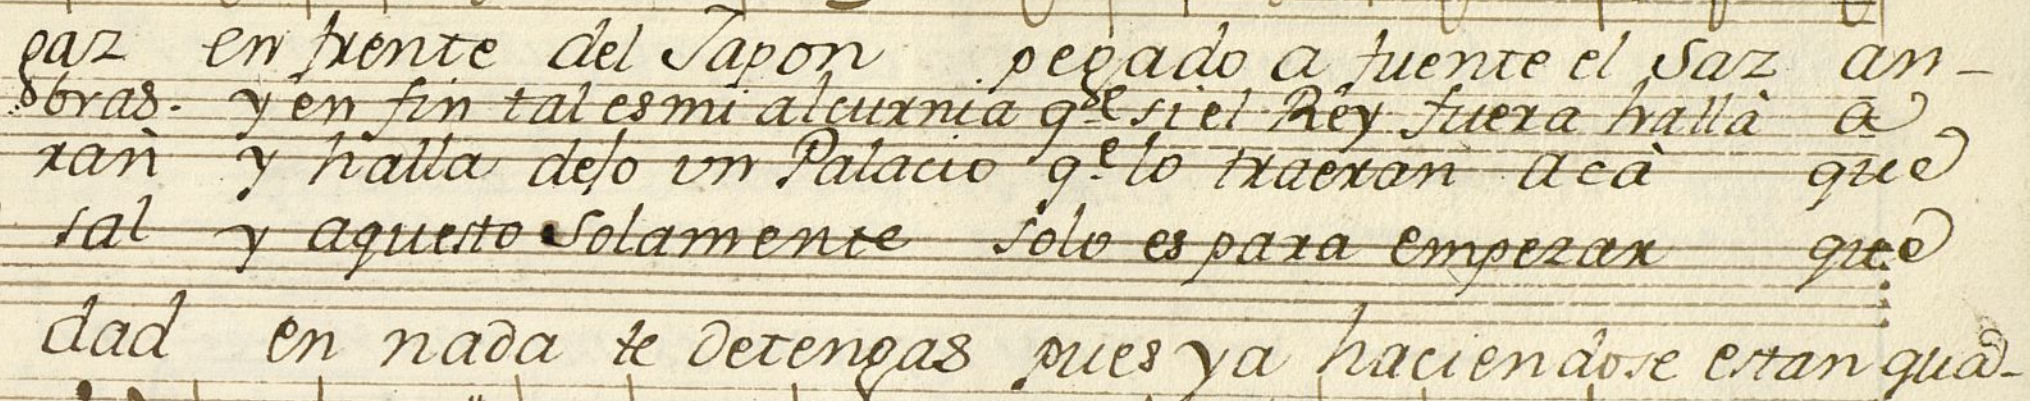 gaz en frente del Japon pegado a fuente el Saz an-
obras. y en fin tal es mi alcurnia qe. si el Rey fuera hallà a
ran y halla dejo un Palacio qe. lo traeran acà que
sal y aquesto solamente solo es para empezar que
dad en nada te detengas pues ya haciendose estan quad-